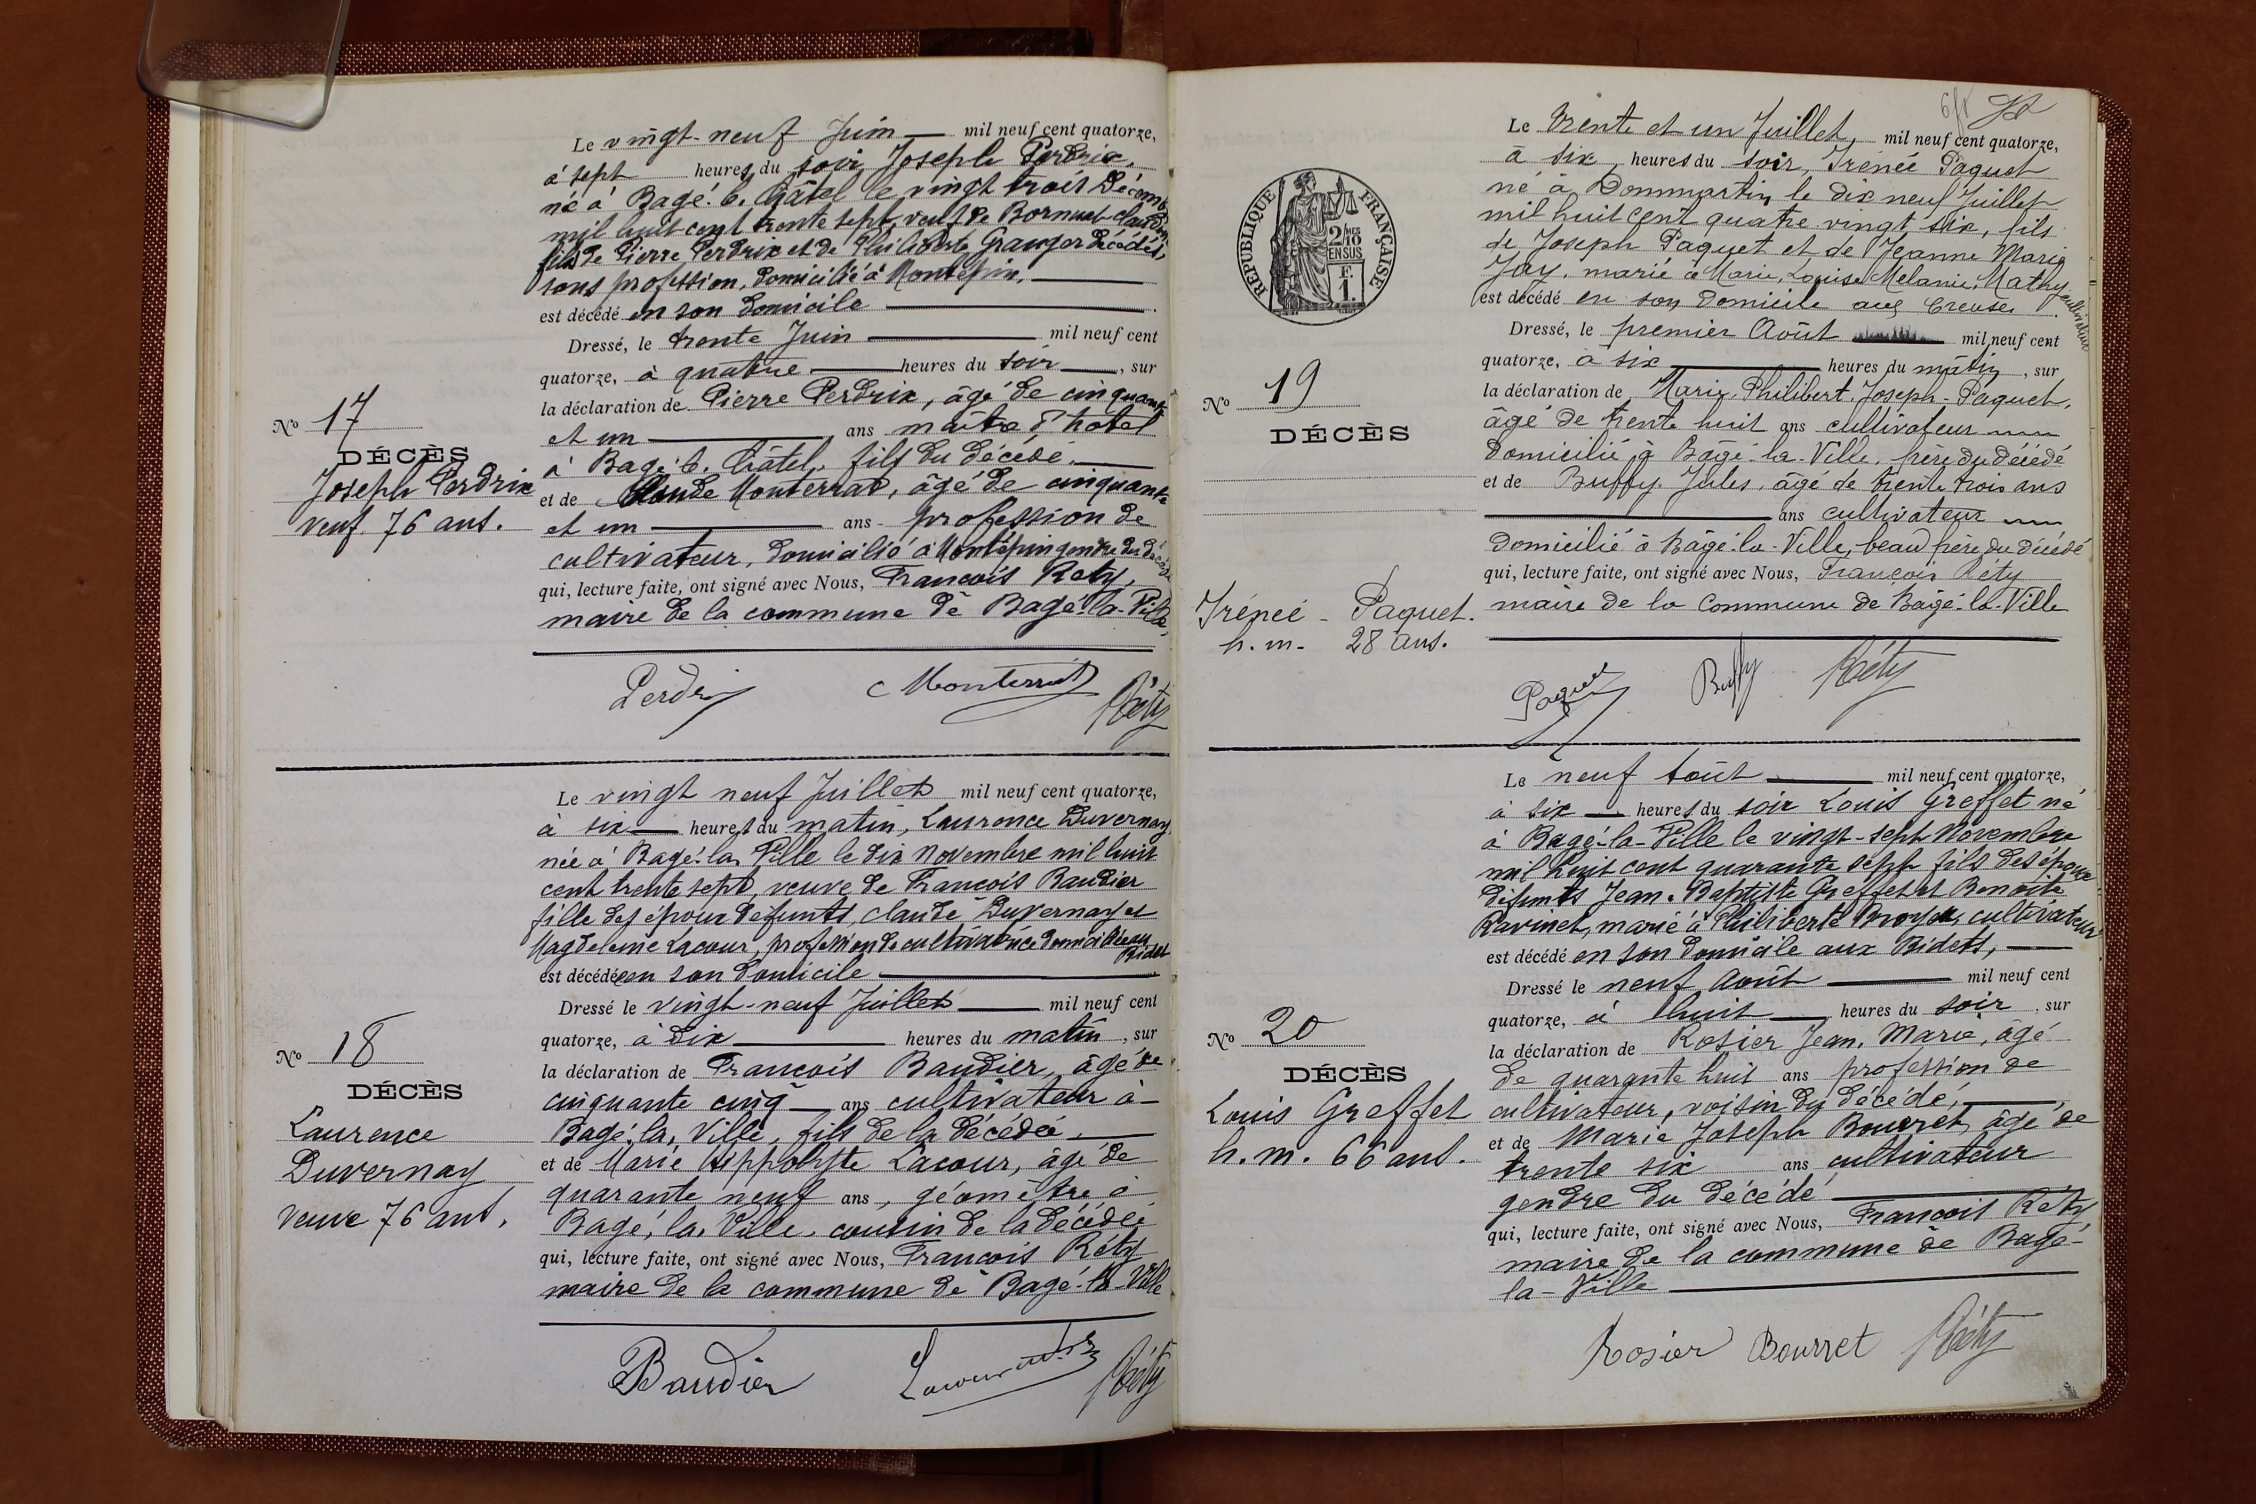 Le vingt-neuf Juin mil neuf cent quatorze,
à sept heures du soir, Joseph Perdrix,
né à Bagé-le-Châtel le vingt trois Décemb
mil huit cent trente sept, veuf de Bornuat
fils de Pierre Perdrix et de Philiberte Granger décédés,
sans profession, domicilié à Montépin,
est décédé en son domicile
Dressé, le trente Juin mil neuf cent
quatorze, à quatre heures du soir, sur
la déclaration de Pierre Perdrix, âgé de cinquante
et un ans maître d'hôtel
à Bagé-le-Châtel, fils du décédé,
et de Claude Monterrat, âgé de cinquante
et un ans profession de
cultivateur, domicilié à Montépin gendre du décédé
qui, lecture faite, ont signé avec Nous, François Réty,
maire de la commune de Bagé-la-Ville,
No 17
DÉCÈS
Joseph Perdrix
veuf. 76 ans.
Perdrix Monterrat Réty
Le vingt neuf Juillet mil neuf cent quatorze,
à six heures du matin, Laurence Duvernay
née à Bagé-la-Ville le dix Novembre mil huit
cent trente sept, veuve de François Baudier
fille des époux défunts, Claude Duvernay et
Magdeleine Lacour, profession de cultivatrice domiciliée au
Bidet
est décédée en son domicile
Dressé le vingt-neuf Juillet mil neuf cent
quatorze, à dix heures du matin, sur
la déclaration de François Baudier, âgé de
cinquante cinq ans cultivateur à
Bagé-la-Ville, fils de la décédée,
et de Marie Hippolyte Lacour, âgé de
quarante neuf ans, géomètre à
Bagé-la-Ville, cousin de la décédée
qui, lecture faite, ont signé avec Nous, François Réty
maire de la commune de Bagé-la-Ville
No 18
DÉCÈS
Laurence
Duvernay
veuve 76 ans.
Baudier Lacour Réty
RÉPUBLIQUE FRANÇAISE
2/10 MES
EN SUS
1 F.
Le Trente et un Juillet, mil neuf cent quatorze,
à six heures du soir, Irénée Paquet
né à Dommartin, le dix neuf Juillet
mil huit cent quatre vingt six, fils
de Joseph Paquet et de Jeanne Marie
Jay, marié à Marie, Louise Melanie, Mathy cultivateur
est décédé en son domicile aux Creuses
Dressé, le premier Août mil neuf cent
quatorze, à six heures du matin, sur
la déclaration de Marie, Philibert, Joseph-Paquet,
âgé de trente huit ans cultivateur
domicilié à Bâgé-la-Ville, frère du décédé
et de Buffy Jules, âgé de trente trois ans
ans cultivateur
domicilié à Bâgé-la-Ville, beau frère du décédé
qui, lecture faite, ont signé avec Nous, François Réty
maire de la Commune de Bâgé-la-Ville
No 19
DÉCÈS
Irénée - Paquet.
h. m. 28 ans.
Paquet Buffy Réty
Le neuf Août mil neuf cent quatorze,
à six heures du soir Louis Greffet né
à Bagé-la-Ville le vingt-sept Novembre
mil huit cent quarante sept fils des époux
défunts Jean-Baptiste Greffet et Benoite
Ravinet, marié à Philiberte Broyer, cultivateur
est décédé en son domicile aux Bidets,
Dressé le neuf Août mil neuf cent
quatorze, à huit heures du soir, sur
la déclaration de Rosier Jean, Marie, âgé
de quarante huit ans profession de
cultivateur, voisin du décédé,
et de Marie Joseph Bourret, âgé de
trente six ans cultivateur
gendre du décédé
qui, lecture faite, ont signé avec Nous, François Réty,
maire de la commune de Bagé-
la-Ville
No 20
DÉCÈS
Louis Greffet
h. m. 66 ans.
Rosier Bourret Réty